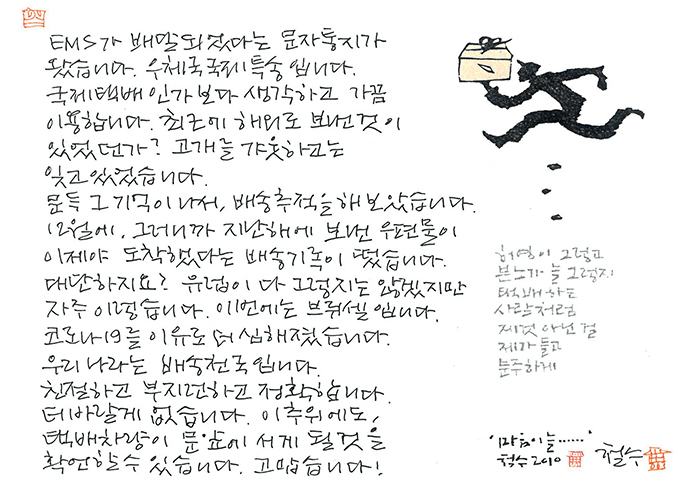 EMS가 배달되었다는 문자통지가
왔습니다. 우체국국제특송입니다.
국제택배인가보다 생각하고 가끔
이용합니다. 최근에 해외로 보낸것이
있었던가? 고개를 갸웃하고는
잊고있었습니다.
문득 그 기억이 나서, 배송추적을해보았습니다.
12월에, 그러니까 지난해에 보낸 우편물이
이제야 도착했다는 배송기록이 떴습니다.
대단하지요? 유럽이 다 그렇지는 않겠지만
자주 이렇습니다. 이번에는 브뤼셀입니다.
코로나19를 이유로 더 심해졌습니다.
우리나라는 배송천국입니다.
친절하고 부지런하고 정확합니다.
더바랄게 없습니다. 이 추위에도,
택배차량이 문앞에 서게 될것을
확언할수 있습니다. 고맙습니다!
허영이 그렇고
분노가 늘 그렇지!
택배하는
사람처럼
제것 아닌 걸
제가 들고
분주하게
'마음이 늘······'
철수 2010
철수